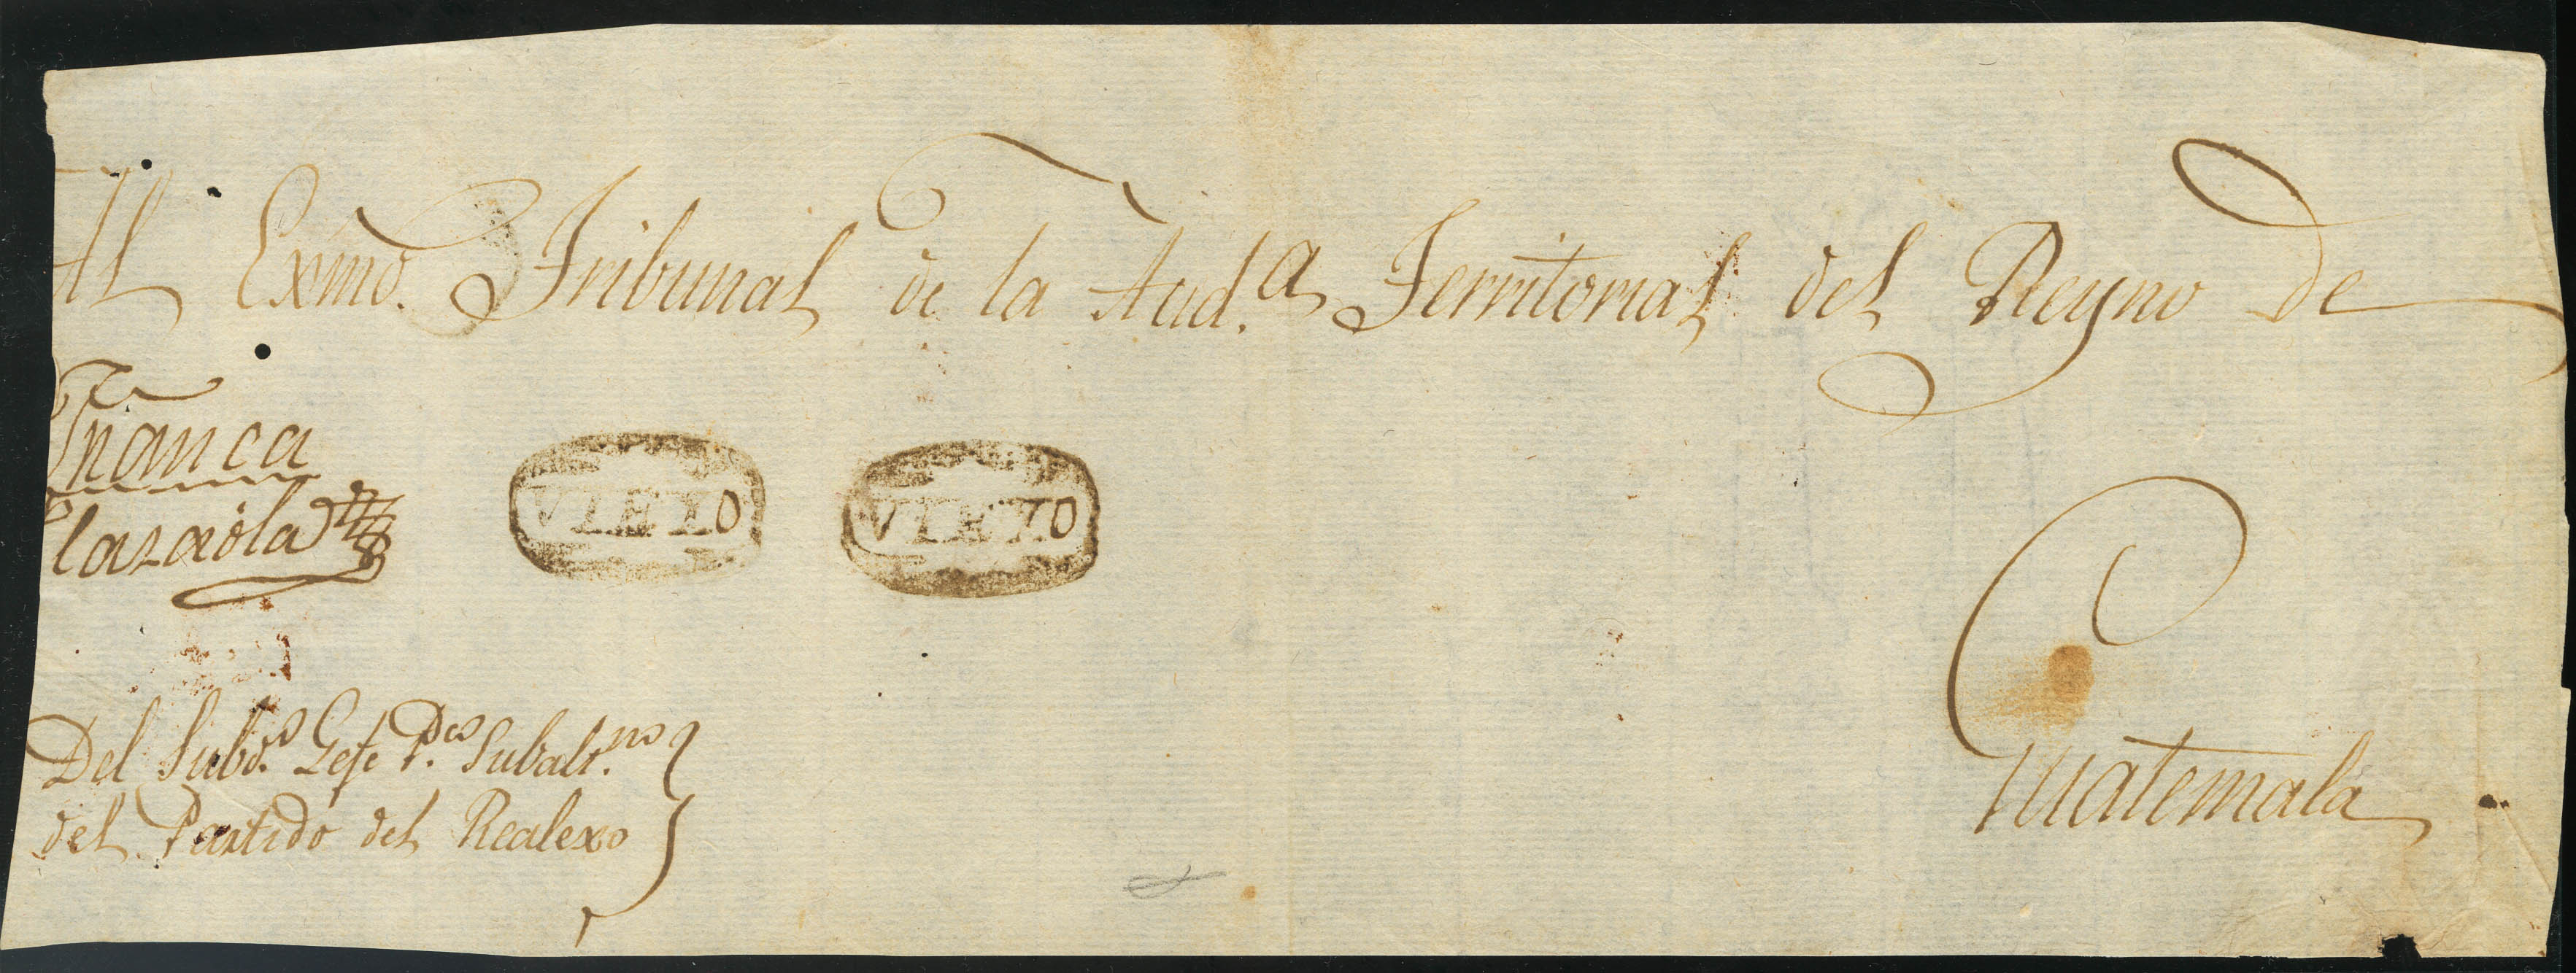 Al Exmo. Tribunal de la Aud.a Territorial del Reyno de
Franca
VIEXO VIEXO
Guatemala
Del Subd.o Gefe P.co Subalt.no
del Partido del Realexo